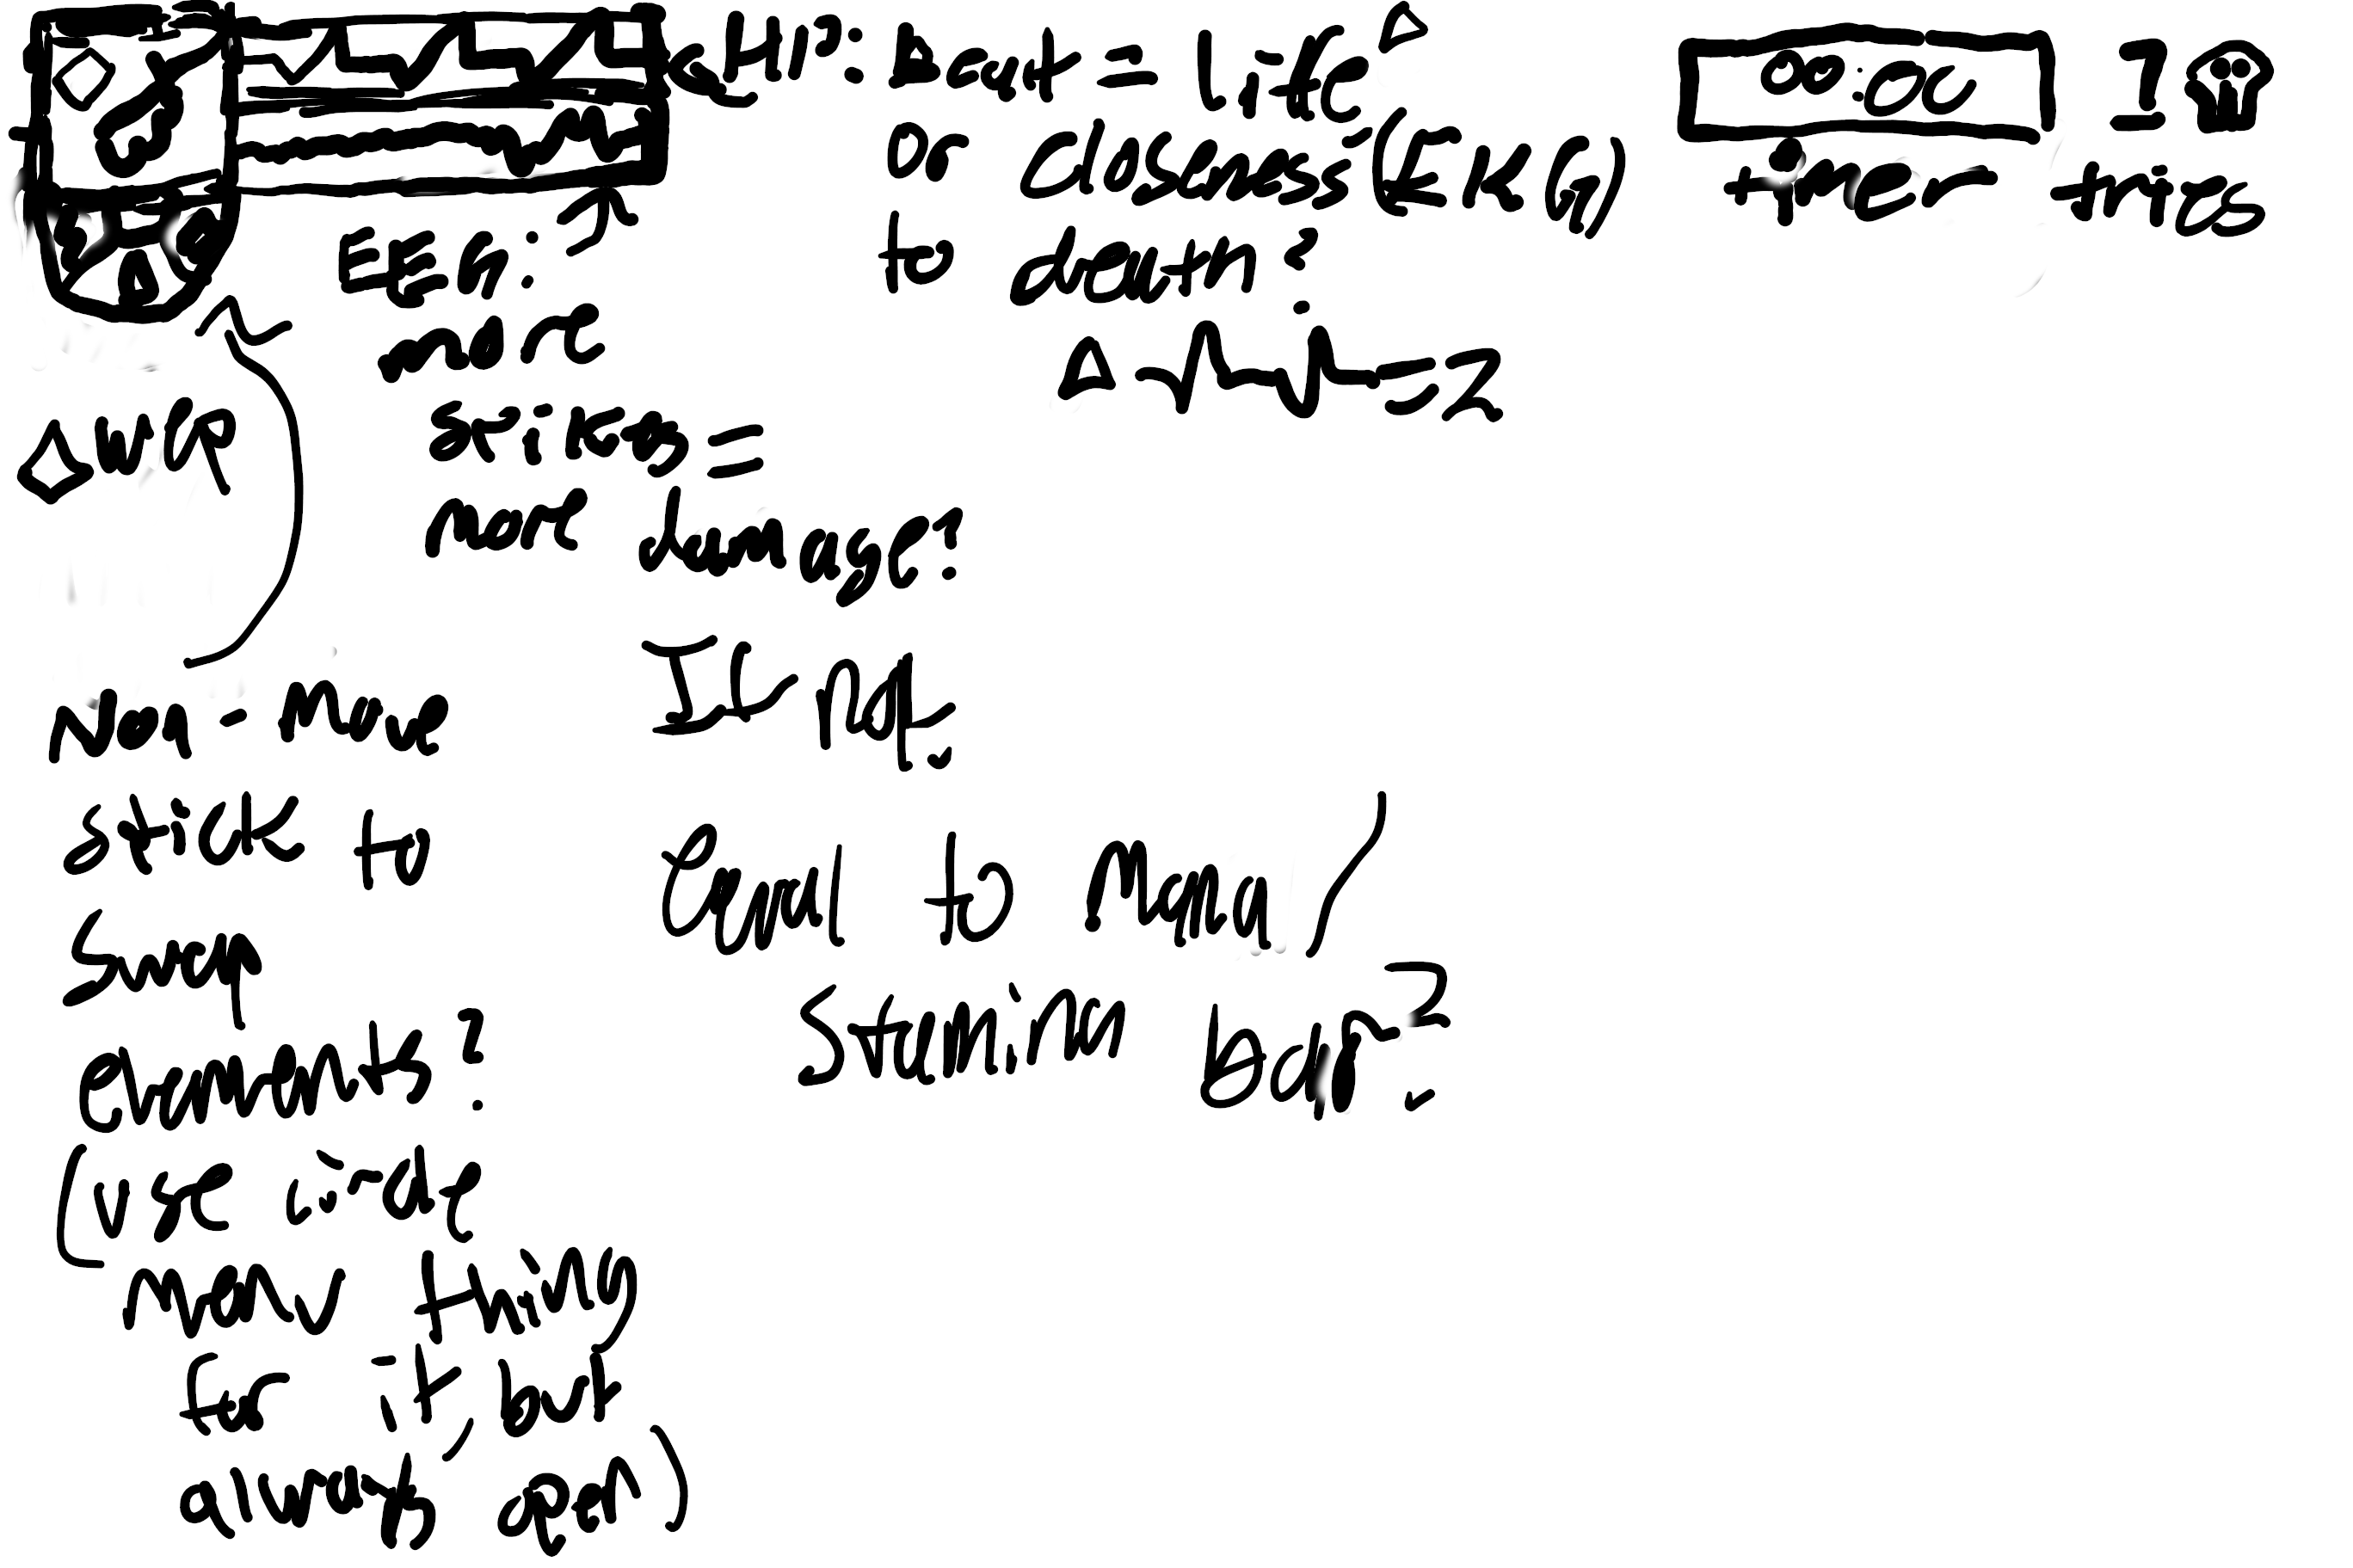 HP: Beat = Life
or closness (EKG)
to death?
00:00
timer
1
tries
EEG:
more
spikes =
more damage?
If not,
equal to mana/
stamina bar?
WIP
Non-move
stick to
swap
elements?
(use circle
menu thing
for it, but
always open)